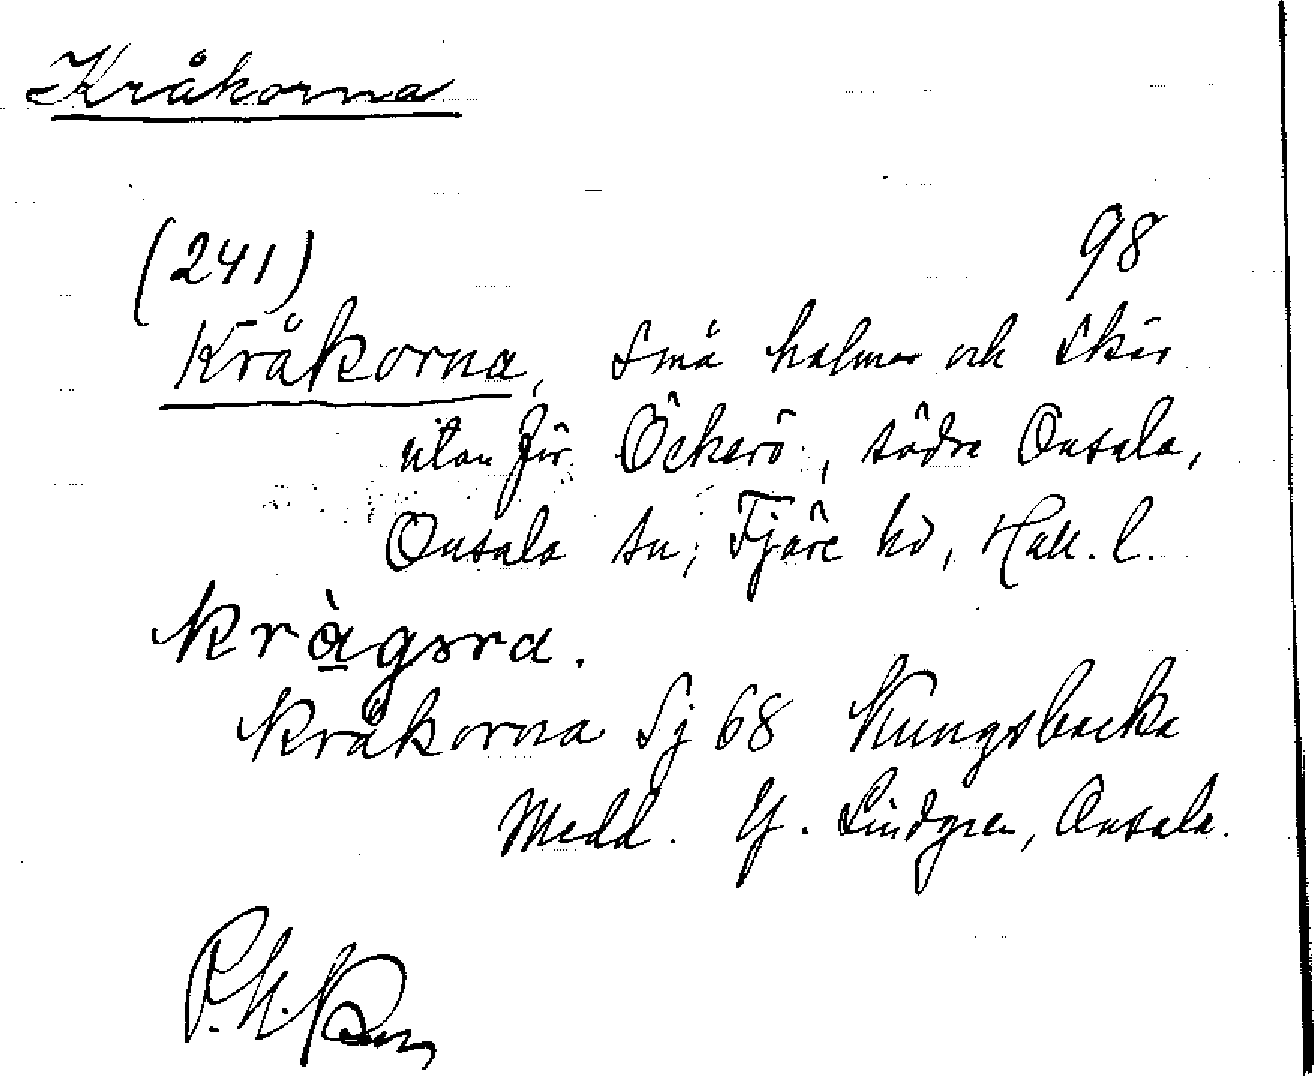 Kråkorna
(241) 98
Kråkorna, små holmar och skär
utanför Öckerö, södra Onsala,
Onsala sn, Fjäre hd, Hall. l.
kràgɷra.
Kråkorna Sj 68 Kungsbacka
Medd. Y. Lindgren, Onsala.